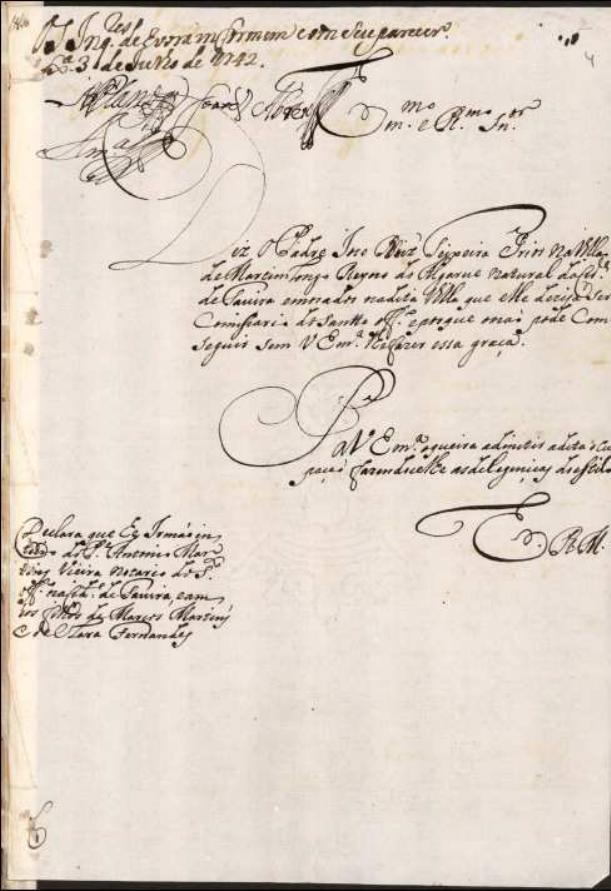 Os Inq.res de Evora informem com seu parecer.
Lx.ª 3 de Julho de 1742.
4
Em.mo e R.mo Sn.or
Diz o Padre Teixeira Prior na Villa
de Martimlongo Reyno do Algarve natural da Cid.e
de Tavira e morador na dita Villa que elle dezeja ser
Comissario do Santto off.º e porque o naõ pode Com
seguir sem V Em.ª lhe fazer essa graça.
P a V Em.ª queira admetir a dita ocu
paçaõ fazendoselhe as deligencias do estilo
E. R. M.
Declara que Ex Irmaõ in
teiro do P.e Antonio Mar
tins Vieira notario do S.to
off.º na Cid.e de Tavira, e am
bos filhos de Marcos Martins
e de Clara Fernandes